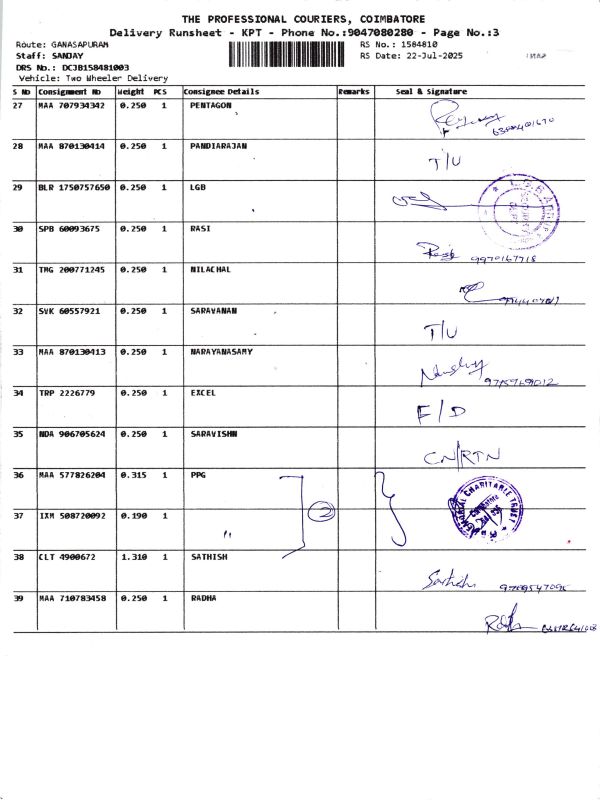 THE PROFESSIONAL COURIERS, COIMBATORE
Delivery Runsheet - KPT - Phone No.:9047080280 - Page No.:3
Route: GANASAPURAM RS No.: 1584810
Staff: SANJAY RS Date: 22-Jul-2025
DRS No.: DCJB158481003
Vehicle: Two Wheeler Delivery
S No Consignment No Weight PCS Consignee Details Remarks Seal & Signature
27 MAA 707934342 0.250 1 PENTAGON
28 MAA 870130414 0.250 1 PANDIARAJAN T/U
29 BLR 1750757650 0.250 1 LGB
30 SPB 60093675 0.250 1 RASI 9970167718
31 TMG 200771245 0.250 1 NILACHAL
32 SVK 60557921 0.250 1 SARAVANAN T/U
33 MAA 870130413 0.250 1 NARAYANASAMY 9715969012
34 TRP 2226779 0.250 1 EXCEL F/D
35 NDA 906705624 0.250 1 SARAVISHN CN/RTN
36 MAA 577826204 0.315 1 PPG 2 MEMORIAL CHARITABLE TRUST
37 IXM 508720092 0.190 1 "
38 CLT 4900672 1.310 1 SATHISH Sathish
39 MAA 710783458 0.250 1 RADHA